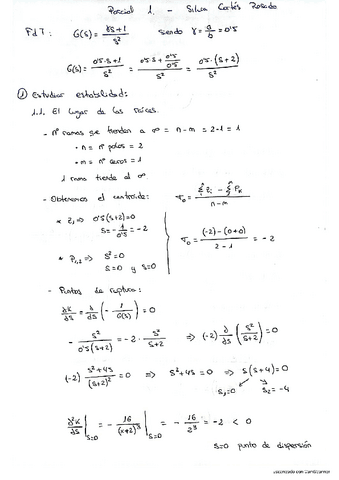 Parcial 1. - Silvia Cortés Rosado
FdT: G(s) = (γs+1)/s² siendo γ = a/b = 0'5
G(s) = (0'5·s+1)/s² = (0'5·s + 0'5/0'5)/s² = 0'5·(s+2)/s²
① Estudiar estabilidad:
1.1. El lugar de las raíces.
- nº ramas que tienden a ∞ = n-m = 2-1 = 1
· n = nº polos = 2
· m = nº ceros = 1
1 rama tiende al ∞
- Obtenemos el centroide: σ₀ = (Σ Zi - Σ Pk)/(n-m)
* Z₁ ⇒ 0'5(s+2)=0
s = -1/0'5 = -2
σ₀ = ((-2)-(0+0))/(2-1) = -2
* P₁,₂ ⇒ s²=0
s=0 y s=0
- Puntos de ruptura:
∂K/∂s = ∂/∂s (-1/G(s)) = 0
- s²/(0'5(s+2)) = -2 · s²/(s+2) ⇒ (-2) ∂/∂s (s²/(s+2)) = 0
(-2) (s²+4s)/(s+2)² = 0 ⇒ s²+4s=0 ⇒ s(s+4)=0
s₁=0 s₂=-4
∂²K/∂s |s=0 = - 16/(s+2)³ |s=0 = - 16/2³ = -2 < 0
s=0 punto de dispersión
Escaneado con CamScanner